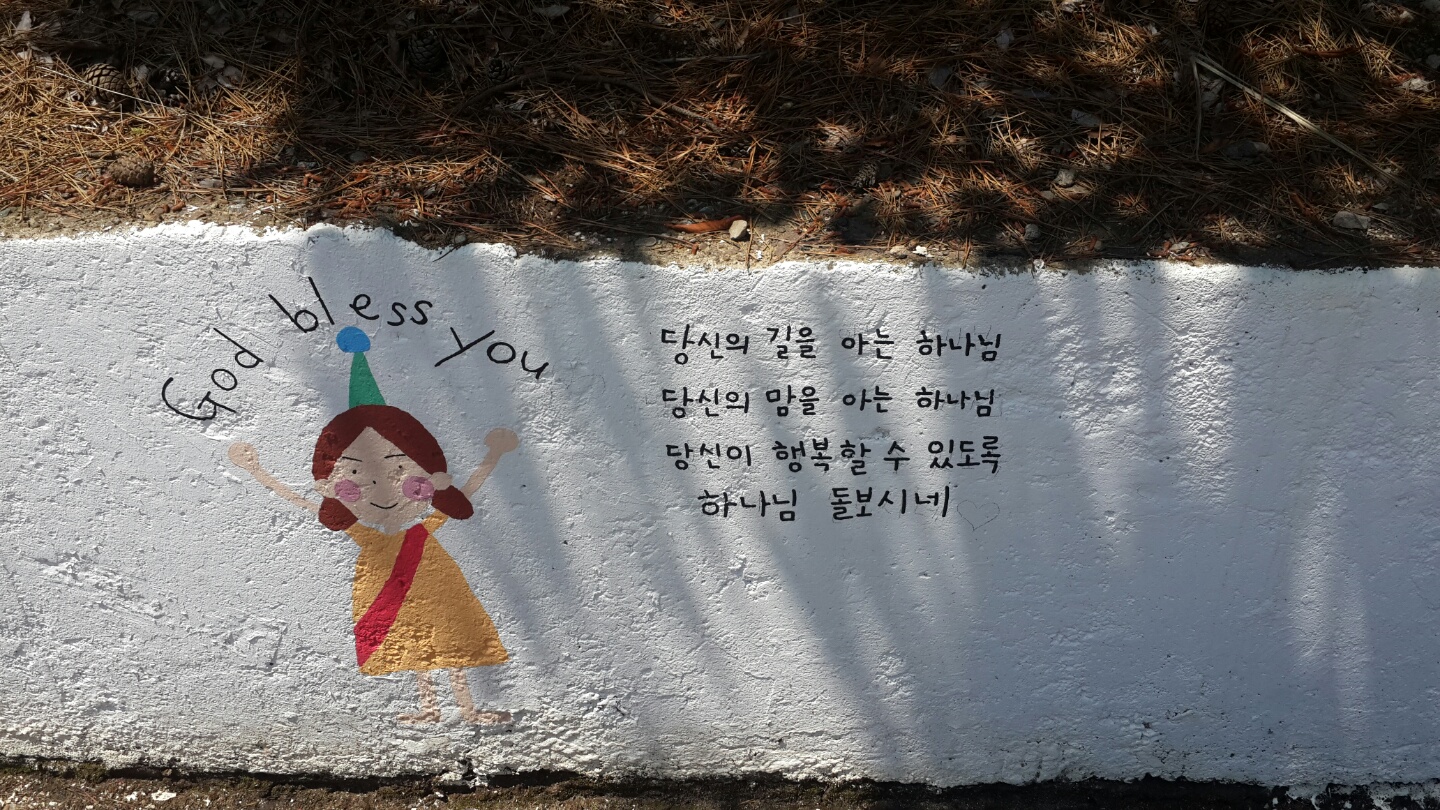 God bless you
당신의 길을 아는 하나님
당신의 맘을 아는 하나님
당신이 행복할 수 있도록
하나님 돌보시네